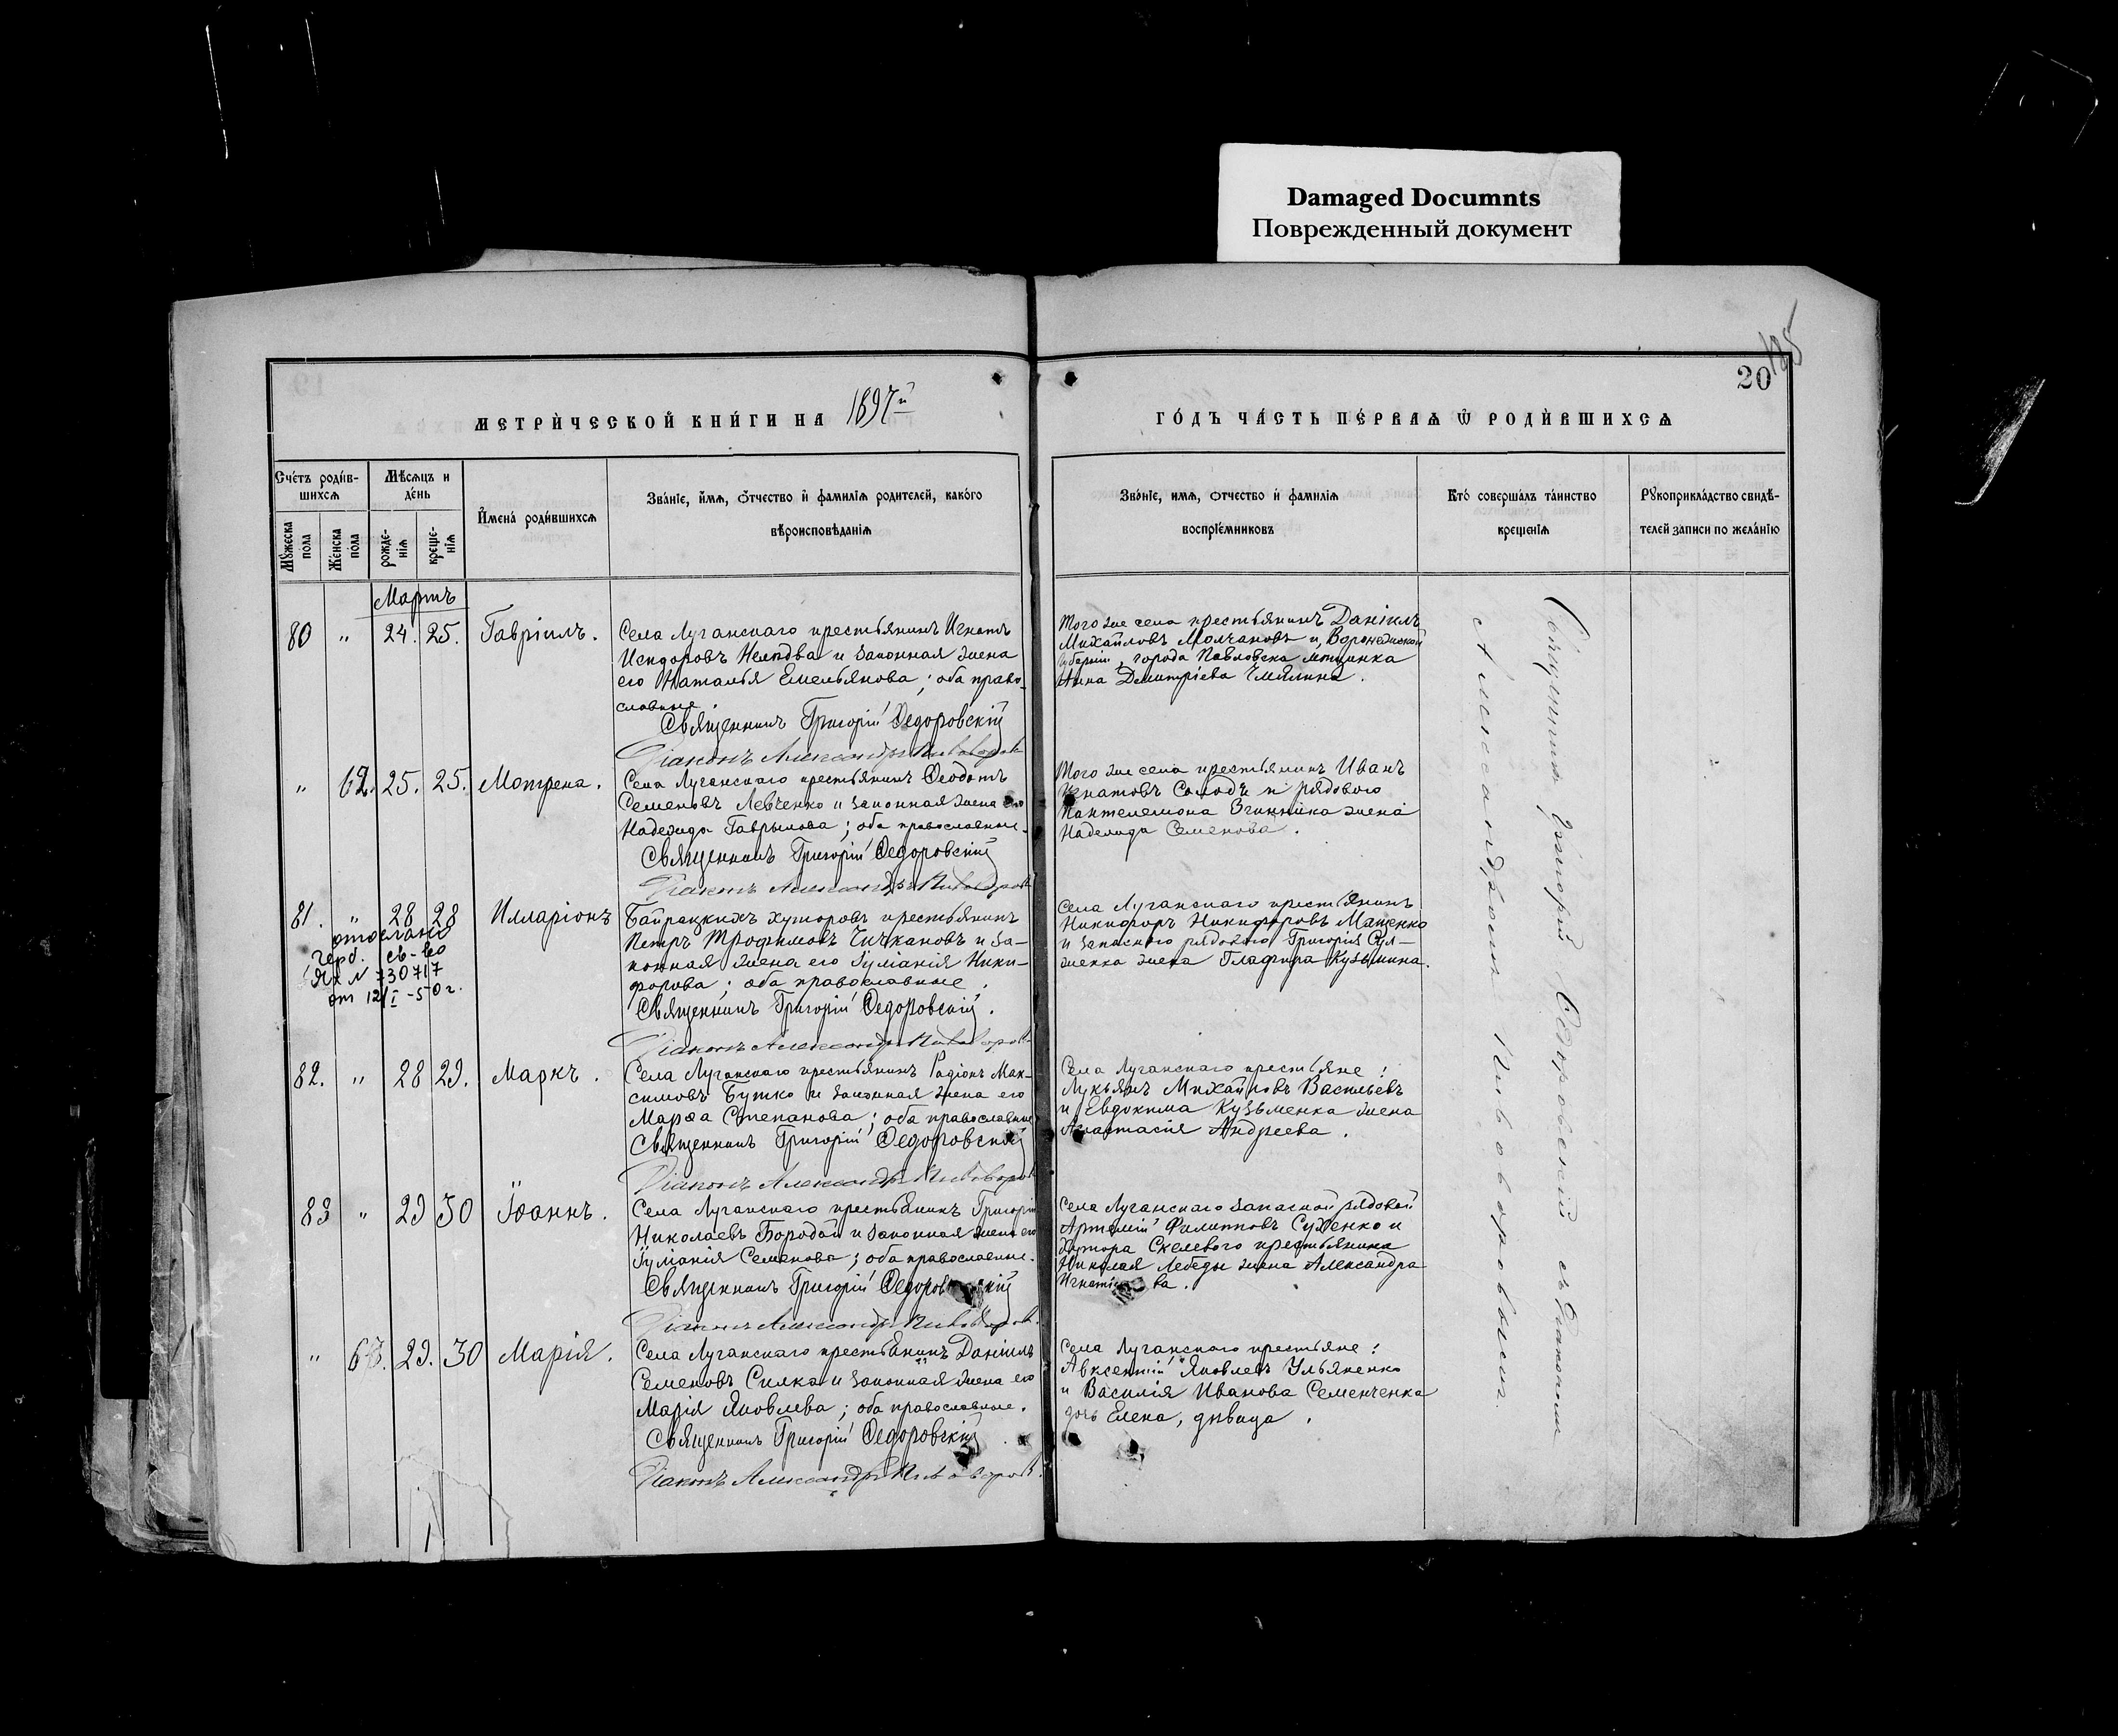 Damaged Documnts
Поврежденный документ
185
20
МЕТРИ́ЧЕСКОЙ КНИ́ГИ НА 1897й
ГО́ДЪ ЧА́СТЬ ПЕ́РВАѦ Ѽ РОДИ́ВШИХСѦ
Счетъ роди́в-
шихсѧ
Мꙋжеска пола
Женска пола
Мѣсѧцъ и
де́нь
рожде-
нїѧ
креще-
нїѧ
И҆мена́ роди́вшихсѧ
Зва́нїе, и҆́мѧ, ѻ҆́тчество и҆ фамилїѧ родителей, како́го
вѣроисповѣ́данїѧ
Зва́нїе, имѧ, ѻтчество и҆ фамилїѧ
воспрїе́мниковъ
Кто́ соверша́лъ та́инство
креще́нїѧ
Рꙋкоприкла́дство свидѣ́-
телей записи по жела́нїю
Мартъ
80 " 24. 25. Гавріилъ.
Села Луганскаго крестьянинъ Игнатъ
Исидоровъ и законная жена
его Наталья Емельянова; оба право-
славные.
Священникъ Григорій Ѳедоровскій
Діаконъ Александръ Пивоваровъ
Того же села крестьянинъ Даніилъ
Михайловъ Молчановъ и Воронежской
губерніи, города Павловска мѣщанка
Анна Димитріева
" 62. 25. 25. Мотрена.
Села Луганскаго крестьянинъ Ѳеодотъ
Семеновъ Левченко и законная жена его
Надежда Гаврылова; оба православные.
Священникъ Григорій Ѳедоровскій
Діаконъ Александръ Пивоваровъ
Того же села крестьянинъ Иванъ
Игнатовъ Солодъ и рядового
Пантелемона жена
Надежда Семенова.
81. " 28 28 Илларіонъ
отослано
герб. св-во
ЯХ N 730717
от 12/I -50г.
Байрацкихъ хуторовъ крестьянинъ
Петръ Трофимовъ Чичкановъ и за-
конная жена его Іуліанія Ники-
форова; оба православные.
Священникъ Григорій Ѳедоровскій.
Діаконъ Александръ Пивоваровъ
Села Луганскаго крестьянинъ
Никифоръ Никифоровъ Мащенко
и запасного рядового Григорія Сул-
женка жена Глафира Кузьмина.
82. " 28 29. Маркъ.
Села Луганскаго крестьянинъ Радіонъ Мак-
симовъ Бутко и законная жена его
Марѳа Степанова; оба православные
Священникъ Григорій Ѳедоровскій
Діаконъ Александръ Пивоваровъ
Села Луганскаго крестьяне:
Лукьянъ Михайловъ Васильевъ
и Евдокима Кузьменка жена
Анастасія Андреева.
83 " 29 30 Іоаннъ.
Села Луганскаго крестьянинъ Григорій
Николаевъ Бородай и законная жена его
Іуліанія Семенова; оба православные.
Священникъ Григорій Ѳедоровскій
Діаконъ Александръ Пивоваровъ.
Села Луганскаго запасной рядовой
Артемій Филипповъ Сухенко и
хутора Скелевого крестьянина
Николая Лебеды жена Александра
" 63. 29. 30 Марія.
Села Луганскаго крестьянинъ Даніилъ
Семеновъ Силка и законная жена его
Марія Яковлева; оба православные.
Священникъ Григорій Ѳедоровскій
Діаконъ Александръ Пивоваровъ.
Села Луганскаго крестьяне:
Авксентій Яковлевъ Ульяненко
и Василія Иванова Семенченка
дочь Елена, дѣвица.
Священникъ Григорій Ѳедоровскій съ Діакономъ
Александромъ Пивоваровымъ.